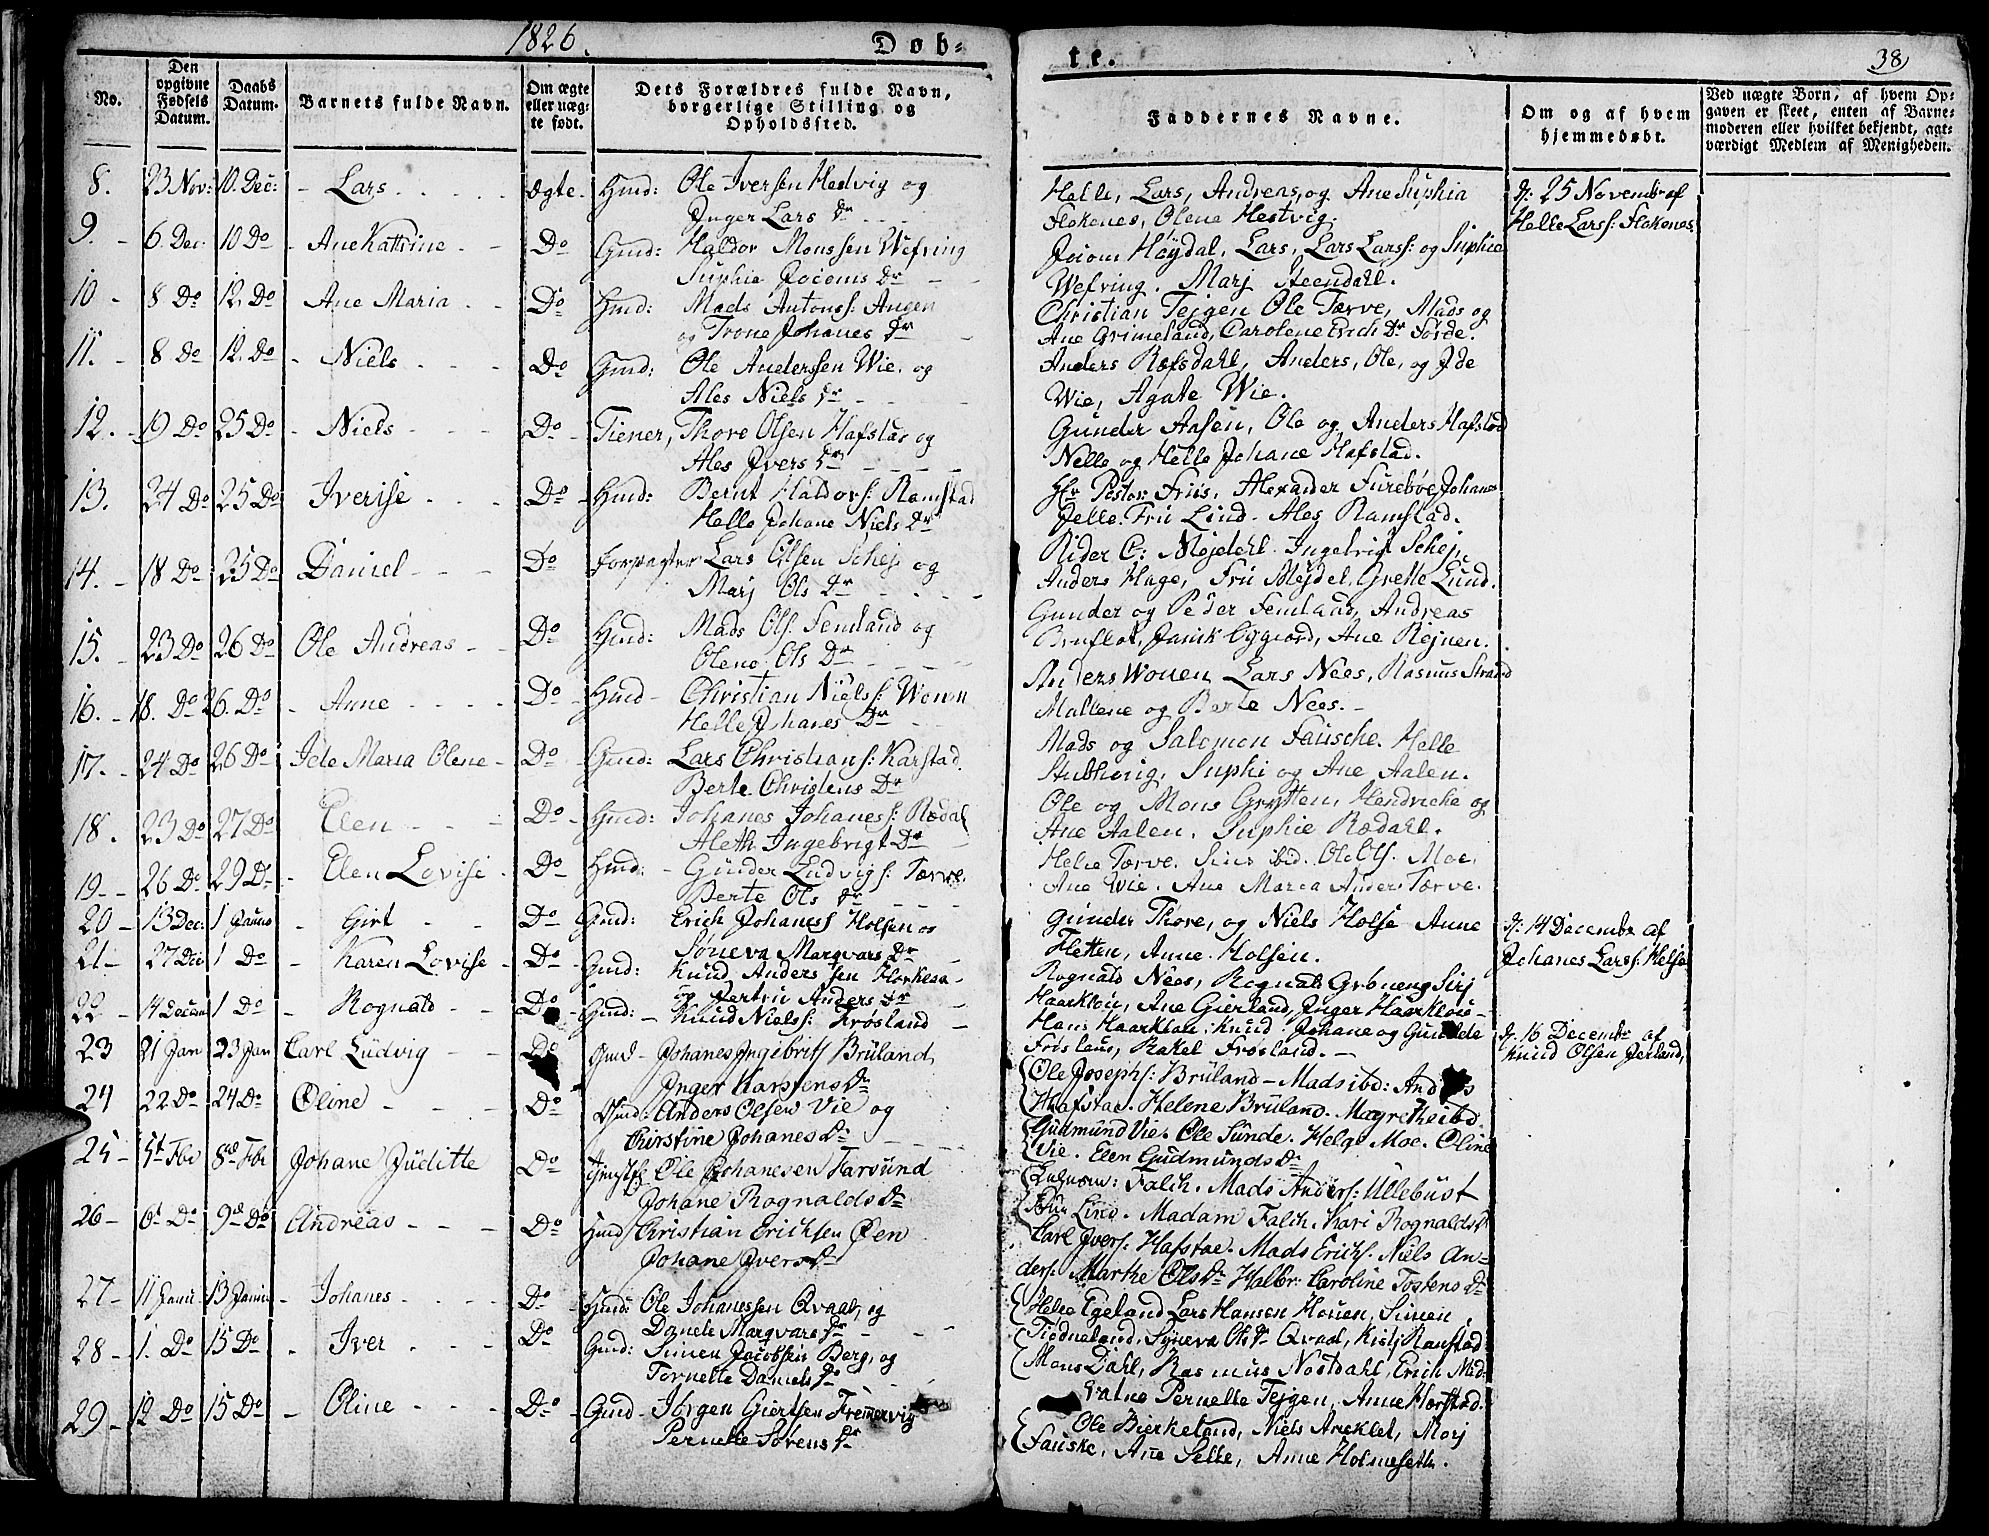 1826.
Døb-
te.
38
No.
Den opgivne Fødsels Datum.
Daabs Datum.
Barnets fulde Navn.
Om ægte eller uægte født.
Dets Forældres fulde Navn, borgerlige Stilling og Opholdssted.
Faddernes Navne.
Om og af hvem hjemmedøbt.
Ved uægte Børn, af hvem Opgaven er skeet, enten af Barnemoderen eller hvilket bekjendt, agtværdigt Medlem af Menigheden.
8. 23 Nov: 10. Dec: - Lars ægte Gmd: Ole Iversen Hestvig og
Inger Lars Dr
Helle, Lars, Andreas, og Ane Suphia
Flokenes, Olene Hestvig.
25 November af
Helle Larss: Flokenes
9. 6. Dec: 10 Do - Ane Kattrine Do Gmd: Haldor Monssen Wefring
Suphia Joconis Dr
Joiom Høydal, Lars, Lars Larss: og Suphie
Wefring. Marj Steendahl.
10 8 Do 12. Do Ane Maria Do Gmd: Mads Antonss: Angen
og Trone Johanes Dr
Christian Tejgen Ole Tærve, Mads og
Ane Grimeland, Carolene Erich Dr Førde.
11. 8 Do 12. Do - Niels Do Gmd: Ole Anderssen Wie, og
Ales Niels Dr
Anders Refsdahl, Anders, Ole, og Ide
Wie, Agate Wie.
12. 19 Do 25 Do - Niels Do Tiener, Thore Olsen Hafstad og
Ales Ivers Dr
Gunder Aasen, Ole og Anders Hafstad
Nelle og Helle Johane Hafstad.
13. 24 Do 25 Do Iverise Do Gmd: Bernt Haldors: Ramstad
Helle Johane Niels Dr
Hr Pastor Friis, Alexander Furebøe Johanes
Jelle. Fru Lind. Ales Ramstad.
14. 18 Do 25 Do Daniel Do Forpagter Lars Olsen Schej og
Marj Ols Dr
Rider C: Mejdehl. Ingebrigt Schej.
Anders Hage, Fru Mejdel, Grette Lund.
15. 23 Do 26 Do Ole Andreas Do Gmd: Mads Ols. Femland og
Olene Ols Dr
Gunder og Peder Femland, Andreas
Bruflot, Janik Ane Rejnen.
16. 18. Do 26. Do - Anne Do Gmd - Christian Nielss: Wonen
Helle Johanes Dr
Anders Wonen Lars Nees, Rasmus Strand
Mallene og Berte Nees.
17. 24 Do 26 Do Ide Maria Olene Do Gmd: Lars Christians: Karstad
Berte Christens Dr
Mads og Salomon Fausche. Helle
Suphi og Ane Aalen.
18. 23 Do 27 Do Elen Do Gmd: Johanes Johaness: Rædal
Aleth Ingebrigt Dr
Ole og Mons Grytten, Hendricke og
Ane Aalen, Suphie Rædahl.
19 26 Do 29 Do - Elen Lovise Do Gmd: Gunder Ludvigs: Tærve
Berte Ols Dr
Helie Tærve. Sirus ibid. Ole Ols. Moe.
Ane Wie. Ane Marea Anders Tærve.
20 13 Dec: 1 Januar - Girt Do Gmd: Erich Johaness Holsen og
Søneva Marqvars Dr
Gunder Thore, og Niels Holse Anne
Fletten, Anne Holsen.
14 December af
Johanes Larss: Helse
21 27 Dec 1 Do - Karen Lovise Do Gmd: Knud Anderssen
og Jertru Anders Dr
Rognald Nees, Rognald Grøneng Sirj
Haarkløw, Ane Gierland, Inger Haarkløw
22 14 Decem 1 Do - Rognald Do Gmd: - Knud Nielss: Frøsland
Hans Haarklow, Knud Johane og Gunilde
Frøsland, Rakel Frøsland.
16 December af
Knud Olsen Jerland,
23 21 Jan 23 Jan Carl Ludvig Do Gmd - Johanes Ingebrits Bruland,
Inger Karstens Dr
Ole Josephs: Bruland - Mads ibd: Anders
Hafstad. Helene Bruland. Magrethe ibd.
24 22 Do 24 Do Oline Do Gmd: Anders Olsen Vie og
Christine Johanes Dr
Gudmund Vie. Ole Sunde. Helge Moe. Oline
Vie. Elen Gudmunds Dr
25 5t Fbr 8de Fbr Johane Juditte Do Ole Johanesen Farsund
Johane Rognalds Dr
Falch. Mads Anders: Ullebust
Lind. Madam Falch. Kari Rognalds Dr
26 6t Do 9de Do Andreas Do Gmd Christian Erichsen Øen
Johane Ivers Dr
Carl Ivers: Hafstad. Mads Erichs. Niels An-
ders. Marke Ols Dr Halbr. Caroline Tostens Dr
27 11 Janu 13 Janu - Johanes Do Gmd: Ole Johanessen Qvaal, og
Danele Marqvars Dr
Helge Egeland Lars Hansen Houen, Simen
Tiødneland, Syneva Ols Dr Qvaal, Kistj Ramstad
28 1. Do 15 Do - Iver Do Gmd: Simen Jacobsen Berg, og
Tornette Daniels Dr
Mons Dahl, Rasmus Nostdahl, Erich Mid-
Pernelle Tejgen, Anne Horstad.
29 12 Do 15 Do - Oline Do Gmd - Jørgen Giertsen Fremervig
Pernelle Sørens Dr
Ole Bierkeland, Niels Areklet, Marj
Fauske, Ane Selle, Anne Holmesett.